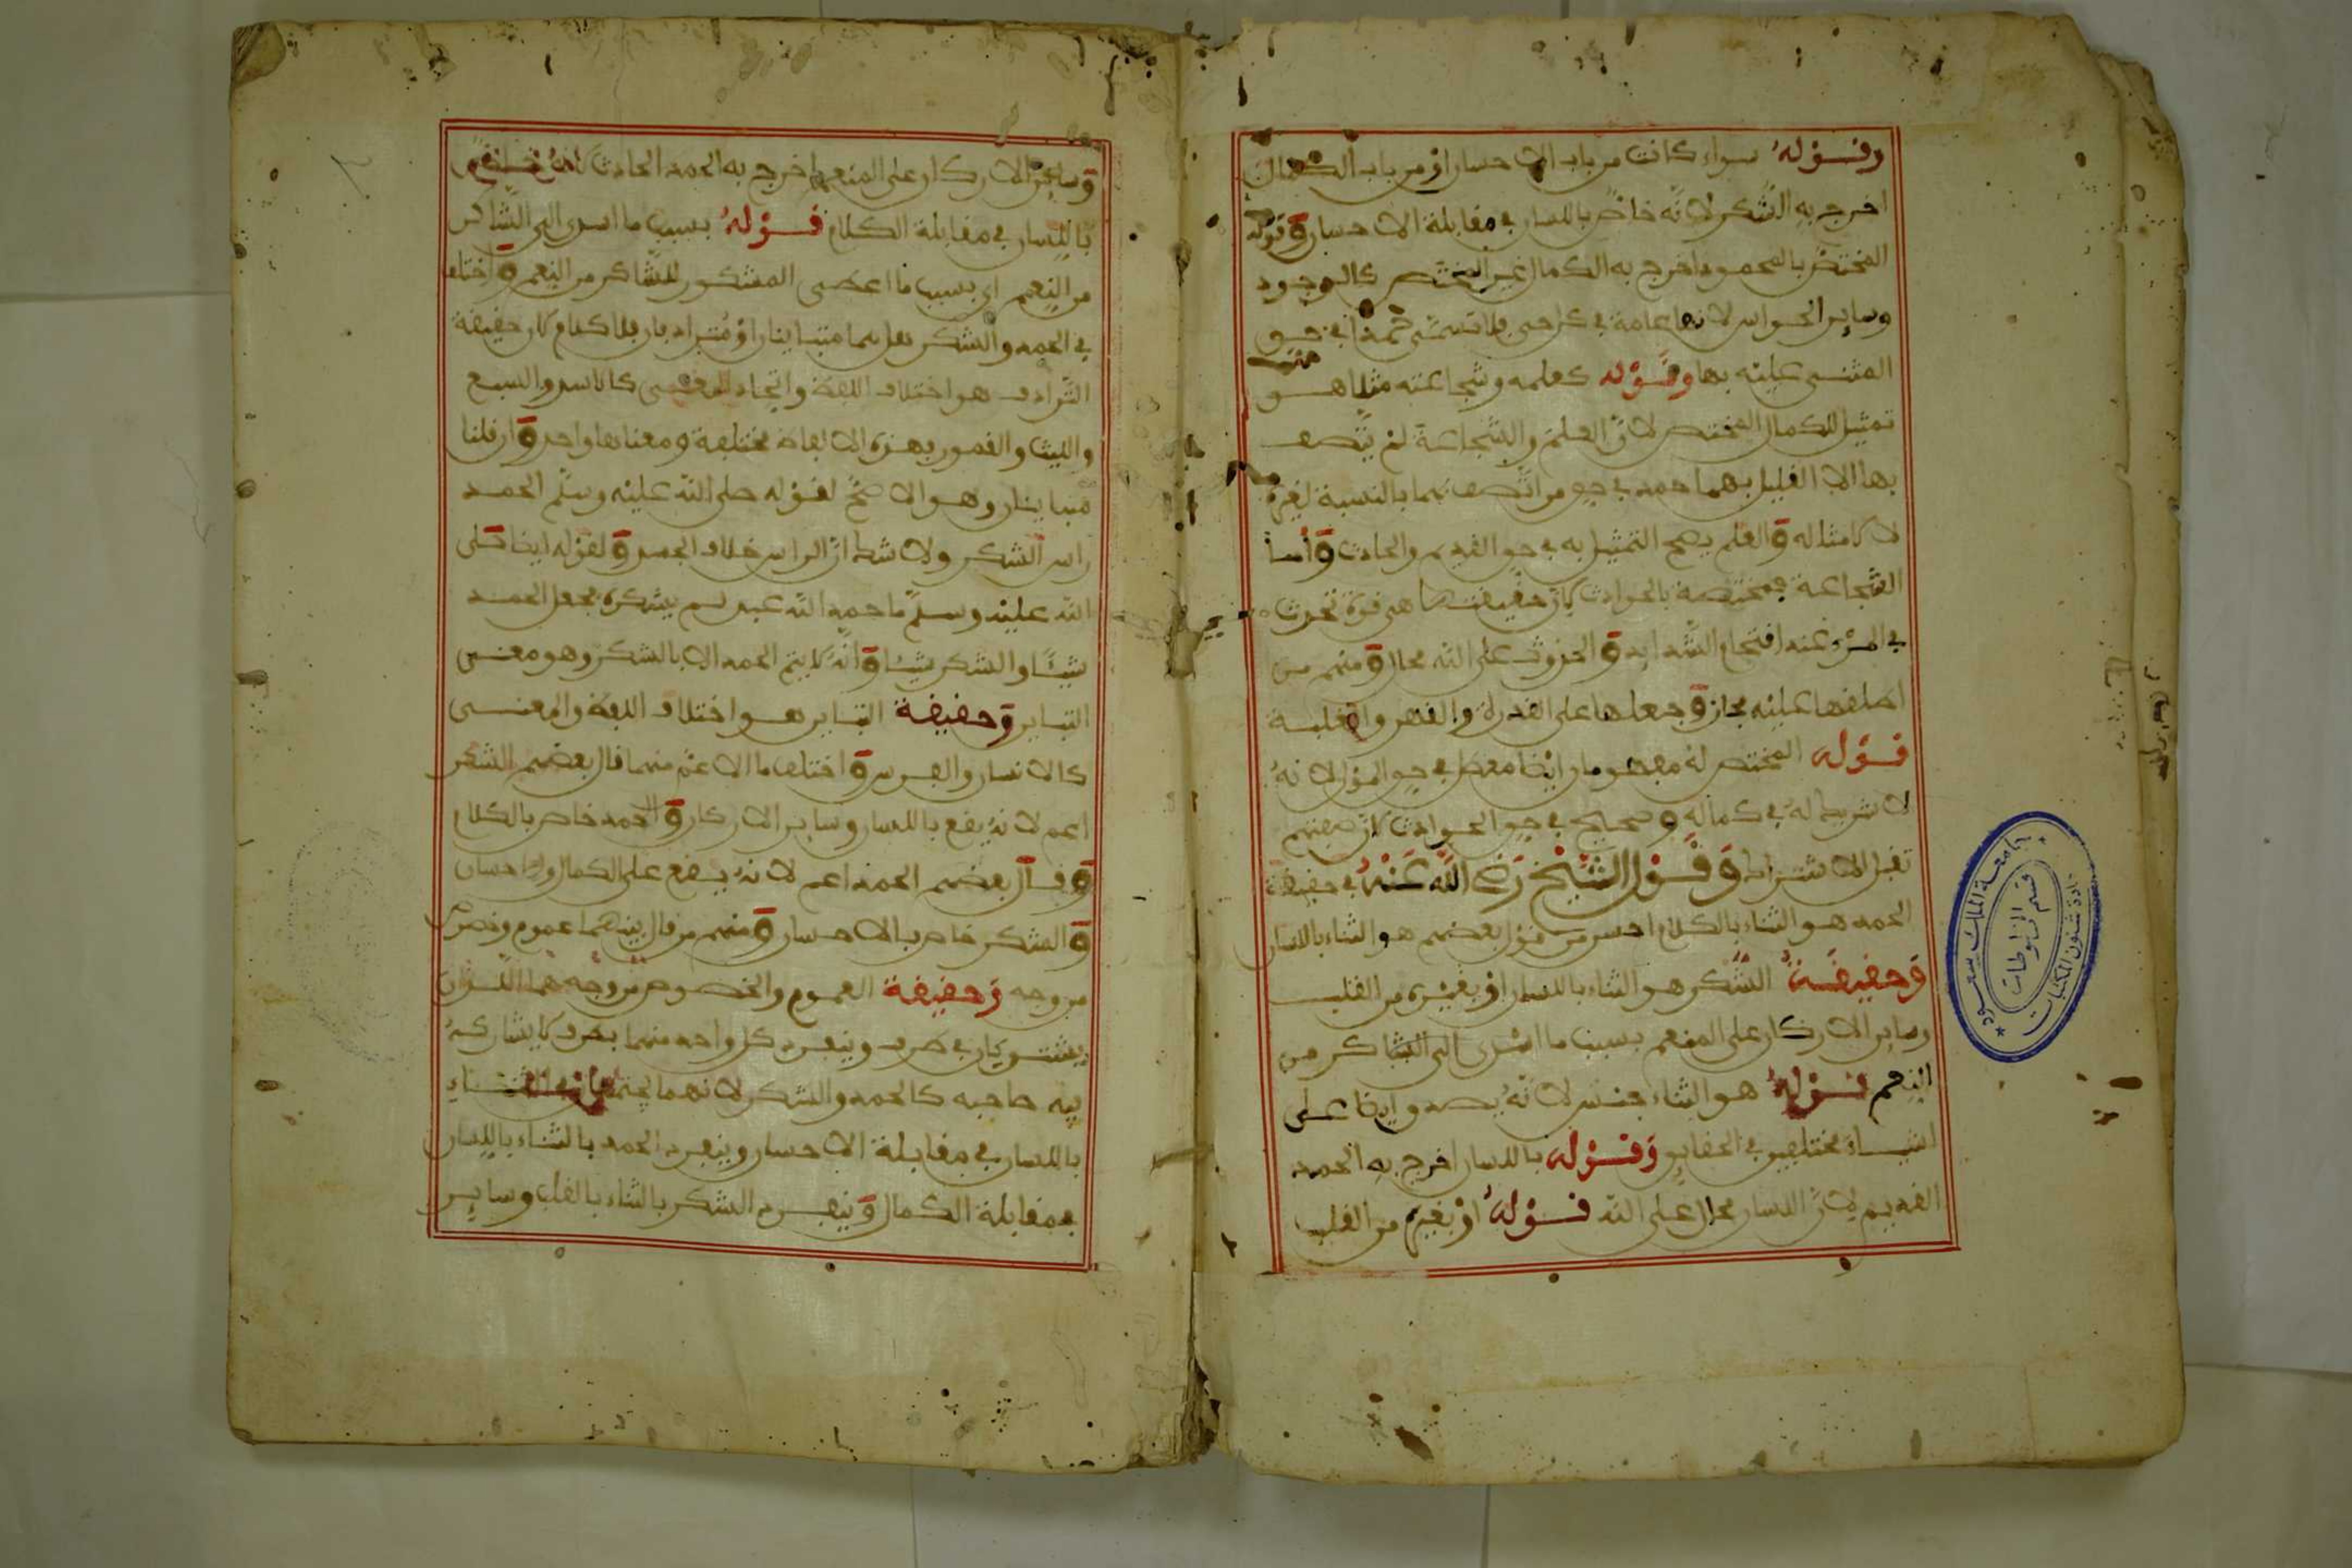 وقوله سواء كانت من باب الاحسان او من باب الكمال
اخرج به الشكر لانه خاص باللسان في مقابلة الاحسان وقوله
المختص بالمحمود اخرج به الكمال غير المختص كالوجود
وساير الحواس لانها عامة في كل حي فلا تسمى حمدا في حق
المثنى عليه بها وقوله كعلمه وشجاعته مثلا هو
تمثيل للكمال المختص لان العلم والشجاعة لم يتصف
بها الا القليل بهما حمد في حق من اتصف بهما بالنسبة لغيره
لا كامثاله والعلم يصح التمثيل به في حق القديم والحادث واما
الشجاعة فمختصة بالحوادث لان حقيقتها هي قوة تحدث
في المرء عند اقتحام الشدايد والحدوث على الله محال ومنهم من
اطلقها عليه مجاز وجعلها على القدرة والقهر والغلبة
قوله المختص له مفهومان ايضا معطل في حق المولى لانه
لا شريك له في كماله وصحيح في حق الحوادث لان صفتهم
تقبل الاشتراك وقول الشيخ رضي الله عنه في حقيقة
الحمد هو الثناء بالكلام احسن من قول بعضهم هو الثناء باللسان
وحقيقة الشكر هو الثناء باللسان او بغيره من القلب
وساير الاركان على المنعم بسبب ما اسدى الى الشاكر من
النعم قوله هو الثناء جنس لانه يصدق ايضا على
اشياء مختلفين في الحقايق وقوله باللسان اخرج به الحمد
القديم لان اللسان محال على الله قوله او بغيره من القلب
وساير الاركان على المنعم اخرج به الحمد الحادث لانه خاص
باللسان في مقابلة الكلام قوله بسبب ما اسدى الى الشاكر
من النعم اي بسبب ما اعطى المشكور للشاكر من النعم واختلف
في الحمد والشكر هل هما متباينان او مترادفان بلا كلام لان حقيقة
الترادف هو اختلاف اللفظ واتحاد المعنى كالاسد والسبع
والليث والقصور فهذه الالفاظ مختلفة ومعناها واحد وان قلنا
متباينان وهو الاصح لقوله صلى الله عليه وسلم الحمد
راس الشكر ولا شك ان الراس خلاف الجسد ولقوله ايضا صلى
الله عليه وسلم ما حمد الله عبد لم يشكره فجعل الحمد
شيئا والشكر شيئا وانه لا يتم الحمد الا بالشكر وهو معنى
التباين وحقيقة التباين هو اختلاف اللفظ والمعنى
كالانسان والفرس واختلف ما الاعم منهما قال بعضهم الشكر
اعم لانه يقع باللسان وساير الاركان والحمد خاص بالكلام
وقال بعضهم الحمد اعم لانه يقع على الكمال والاحسان
والشكر خاص بالاحسان ومنهم من قال بينهما عموم وخصوص
من وجه وحقيقة العموم والخصوص من وجه هما اللذان
يشتركان في طرف وينفرد كل واحد منهما بطرف لا يشاركه
فيه صاحبه كالحمد والشكر لانهما يجتمعان في الثناء
باللسان في مقابلة الاحسان وينفرد الحمد بالثناء باللسان
في مقابلة الكمال وينفرد الشكر بالثناء بالقلب وساير
جامعة الملك سعود
قسم المخطوطات
عمادة شئون المكتبات